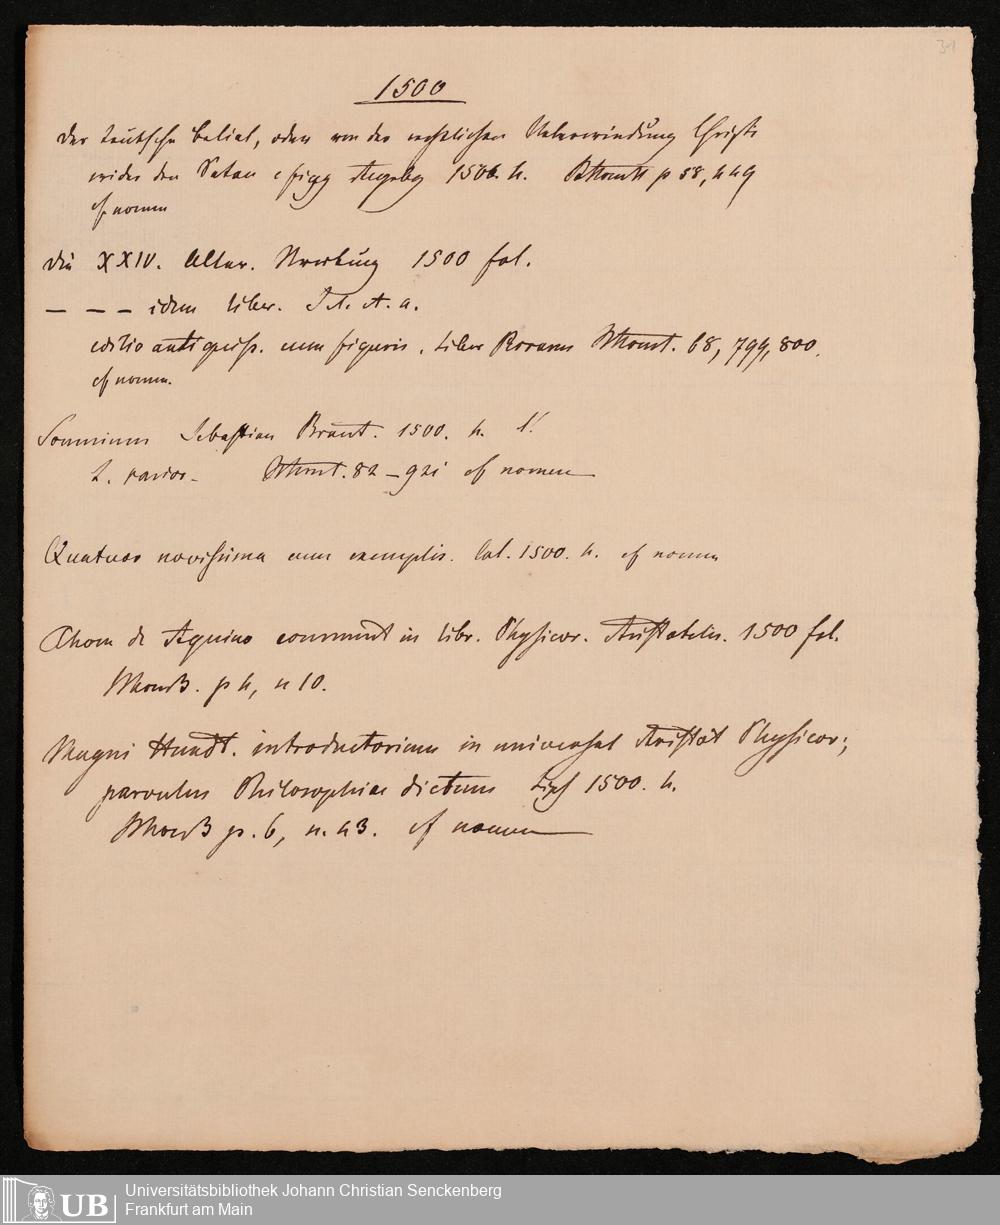 31
1500
Der teutsche Belial, oder von der rechtlichen Ueberwindung Christi
wider den Satan c figg Augsbg 1500. 4. p 58, 449
cf nomen
Die XXIV. Alten. 1500 fol.
— — — idem liber. S. l. et a.
editio antiquiss. cum figuris. Liber Rarus 68, 799, 800.
cf nomen.
Somnium Sebastian Brant. 1500. 4.
L. rarior - 82 - 921 cf nomen
Quatuor novissima cum exemplis. lat. 1500. 4. cf nomen
Thom de Aquino comment in libr. Physicor. Aristotelis. 1500 fol.
p 4, n 10.
Magni Hundt. introductorium in universal Aristot Physicor;
parvulus Philosophiae dictum Lips 1500. 4.
p. 6, n. 43. cf nomen
UB
Universitätsbibliothek Johann Christian Senckenberg
Frankfurt am Main